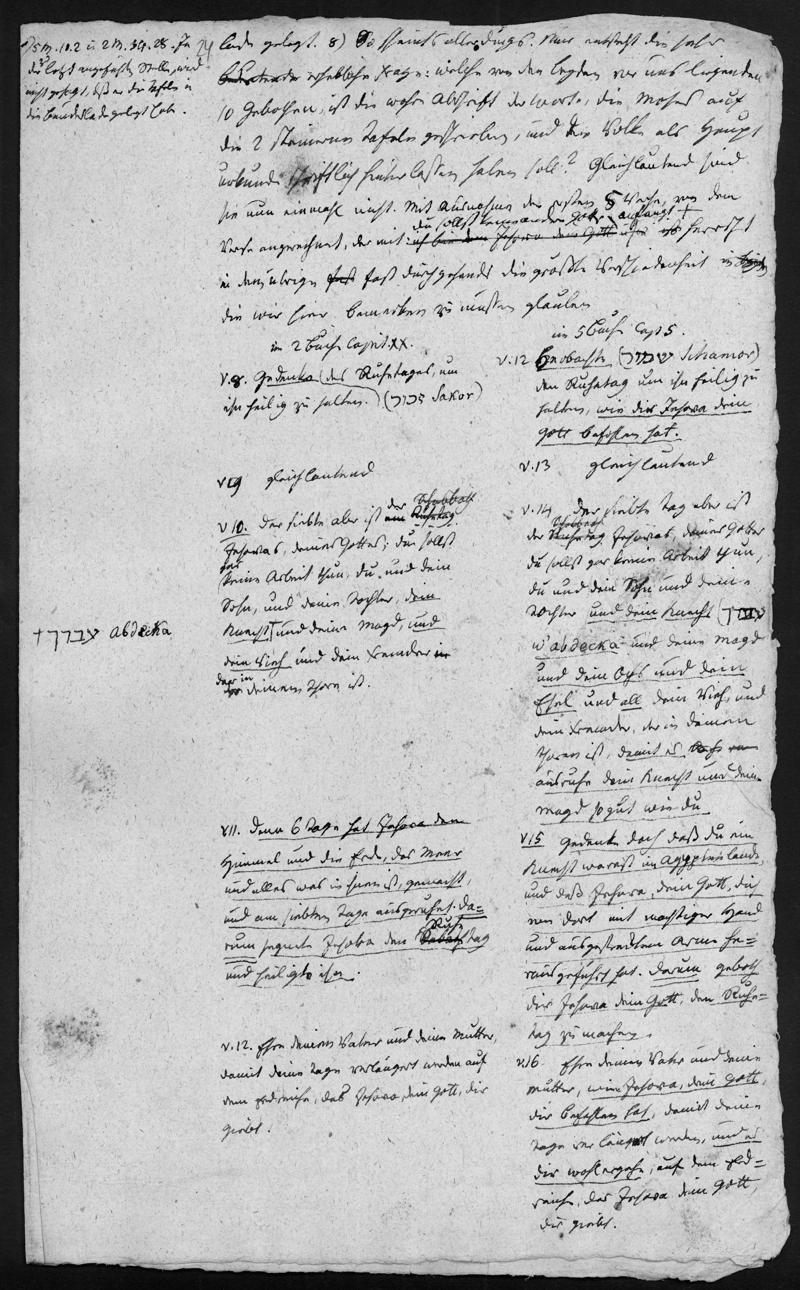 5 M. 10. 2 u. 2 M. 34. 28. In
der letzt angeführten Stelle, wird
nicht gesagt, daß er die Tafeln in
die Bundeslade gelegt habe.
lade gelegt. 8) So scheints allerdings. Nur entsteht die sehr
bedeutende erhebliche Frage: welche von den beyden vor uns liegenden
10 Gebothen, ist die wahre Abschrift der Worte, die Moses auf
die 2 steinernen Tafeln geschrieben, und dem Volke als Haupt
urkunde schriftlich hinterlassen haben soll? Gleichlautend sind
sie nun einmahl nicht. Mit Ausnahme der ersten 5 Verse, von dem
du sollst keine andern Götter anfängt +
Verse angerechnet, der mit: ich bin dein Jehova dein Gott herrscht
in den übrigen fast durchgehends die größte Verschiedenheit in
die wir hier bemerken zu müssen glauben
im 2 Buche Capit. XX.
V. 8. Gedenke (des Ruhetages, um
ihn heilig zu halten.) (זכור Sakor)
V. 9 gleichlautend
V 10. Der siebte aber ist der Schabbath
ein Ruhetag
Jehovas, deines Gottes; du sollst
gar
keine Arbeit thun, du, und dein
Sohn, und deine Tochter, dein
Knecht † und deine Magd, und
dein Vieh und dein Fremder in
der in
deinem Thore ist.
עבדך † Abdecka
V 11. Denn 6 Tage hat Jehova den
Himmel und die Erde, das Meer
und alles was in ihnen ist, gemacht,
und am siebten Tage ausgeruhet. Da=
rum segnete Jehova den Ruhe
Sabathtag
und heiligte ihn.
V. 12. Ehre deinen Vater und deine Mutter,
damit deine Tage verlängert werden auf
dem Erdreiche, das Jehova, dein Gott, dir
giebt.
im 5 Buche Capt 5.
V. 12 Beobachte (שמור Schamor)
den Ruhetag um ihn heilig zu
halten, wie dir Jehova dein
Gott befohlen hat.
V. 13 gleichlautend
V. 14 Der siebte Tag aber ist
Schabbath
der Ruhetag Jehovas, deines Gottes
du sollst gar keine Arbeit thun,
du und dein Sohn und deine
Tochter und dein Knecht (ועבדך
w'abdecka und deine Magd
und dein Ochs und dein
Esel und all dein Vieh, und
dein Fremder, der in deinem
Thoren ist, damit es
ausruhe dein Knecht und deine
Magd so gut wie du
V 15 Gedenke doch daß du ein
Knecht warst im Aegyptenlande,
und daß Jehova, dein Gott, dich
von dort mit mächtiger Hand
und ausgestrecktem Arme he=
rausgeführt hat. Darum geboth
dir Jehova dein Gott, den Ruhe=
tag zu machen.
V. 16 Ehre deinen Vater und deine
Mutter, wie Jehova, dein Gott,
dir befohlen hat, damit deine
Tage verlängert werden, und es
dir wohlergehe, auf dem Erd=
reiche, das Jehova dein Gott,
dir giebt.